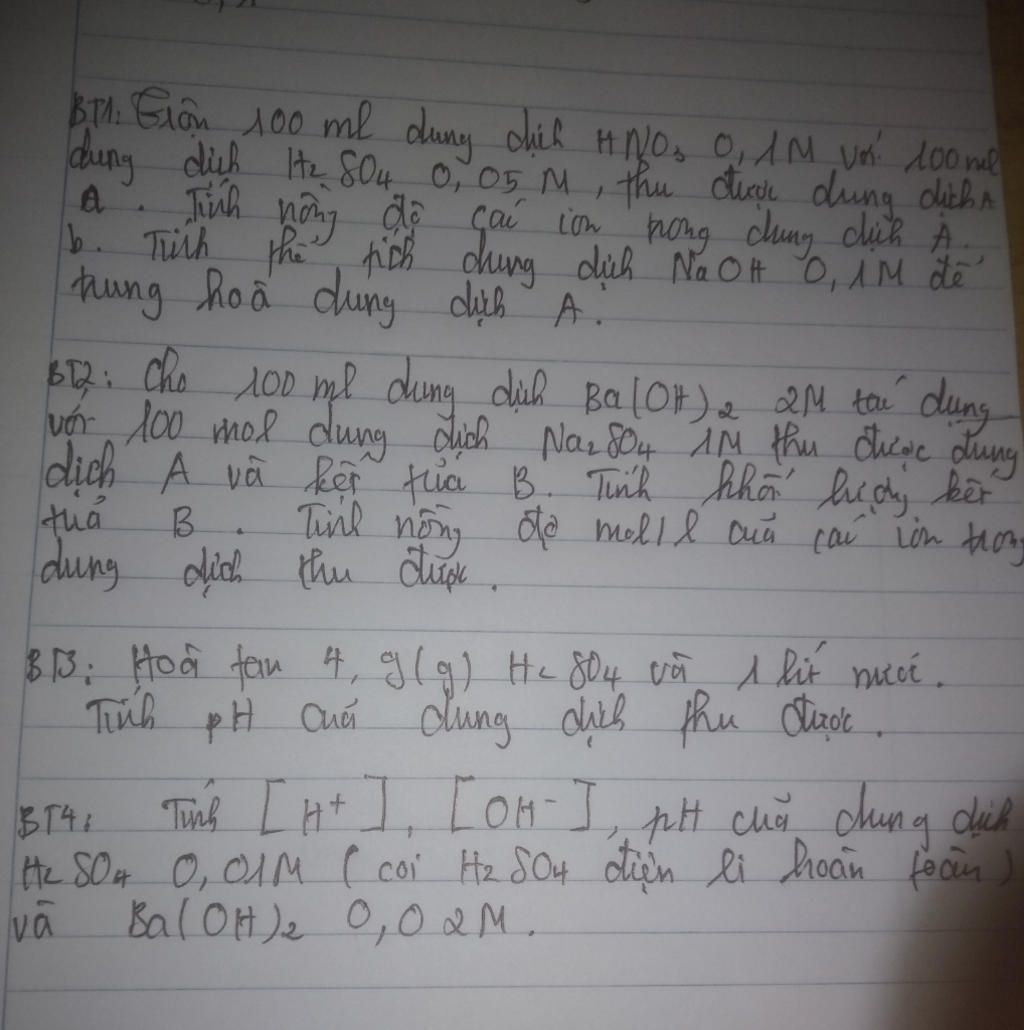 BT1: Trộn 100 ml dung dịch HNO₃ 0,1M với 100ml
dung dịch H₂SO₄ 0,05M, thu được dung dịch A
a. Tính nồng độ các ion trong dung dịch A.
b. Tính thể tích dung dịch NaOH 0,1M để
trung hoà dung dịch A.
BT2: Cho 100 ml dung dịch Ba(OH)₂ 2M tác dụng
với 100 mol dung dịch Na₂SO₄ 1M thu được dung
dịch A và kết tủa B. Tính khối lượng kết
tủa B. Tính nồng độ mol/l của các ion trong
dung dịch thu được.
BT3: Hoà tan 4,9(g) H₂SO₄ và 1 lít nước.
Tính pH của dung dịch thu được.
BT4: Tính [H⁺], [OH⁻], pH của dung dịch
H₂SO₄ 0,01M (coi H₂SO₄ điện li hoàn toàn)
và Ba(OH)₂ 0,02M.